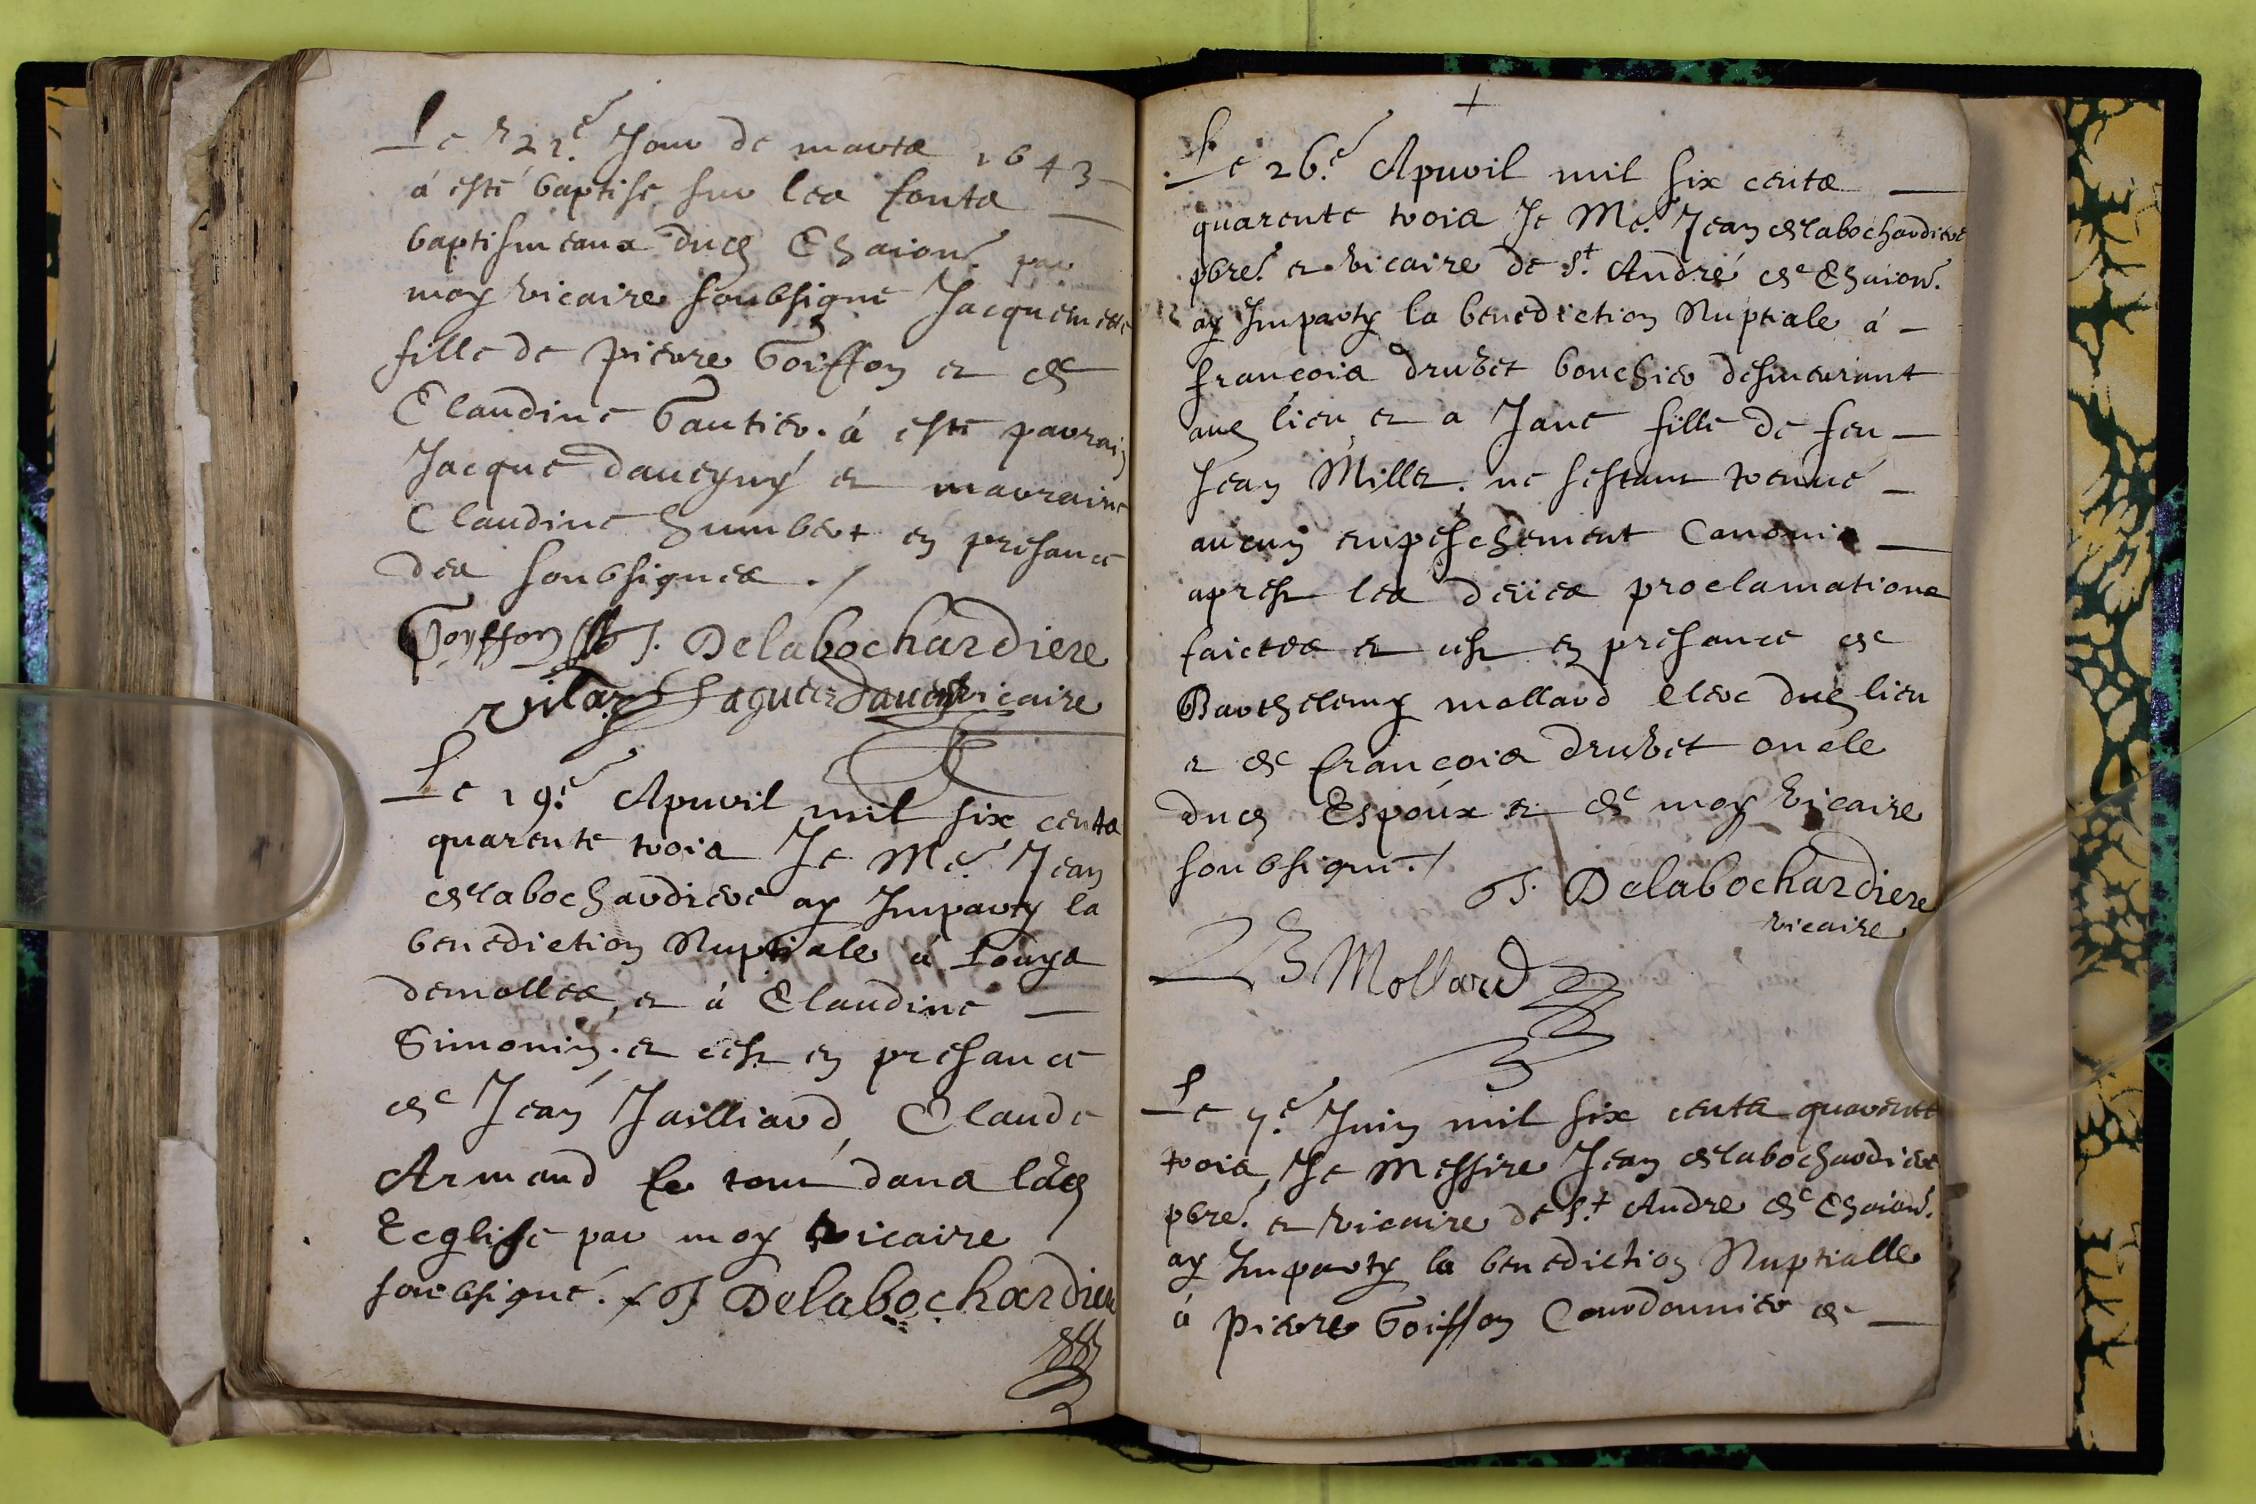 Le 22e Jour de mars 1643
a esté baptisé sur les fonts
baptismeaux dud Chaion? par
moy vicaire soubsigné Jacquemette
fille de pierre Goiffon et de
Claudine Gautier. á esté parrain
Jacque Daueyny et marraine
Claudine humbert en presance
des soubsignes ./
Goyffon J. Delabochardiere
Vilaz Jaques Dauen vicaire
Le 19e Apuril mil six cents
quarente trois Je Me. Jean
delabochardiere ay Imparty la
benediction Nuptiale á Louys
demolles, et á Claudine
Simonin. et cest en presance
de Jean Jailliard, Claude
Armand le tout dans lad
Ecglise par moy vicaire
soubsigné. / J Delabochardiere
+
Le 26e Apuril mil six cents
quarente trois Je Me. Jean delabochardiere
pbre. et vicaire de St. André de Chaion.
ay Imparty la benediction Nuptiale á
françois druhet bouchier desmeurant
aud lieu et a Jane fille de feu
Jean Millet. ne sestant treuué
aucun empeschement Canonic
apres les deües proclamations
faictes et cest en presance de
Barthelemy mollard clerc dud lieu
et de françois druhet oncle
dud Espoux et de moy vicaire
soubsigné ./
J. Delabochardiere
vicaire
B Mollard
Le 7e Juin mil six cents quarente
trois, Je Messire Jean delabochardiere
pbre. et vicaire de St. Andre de Chaion.
ay Imparty la benediction Nuptialle
á pierre Goiffon Courdounier de